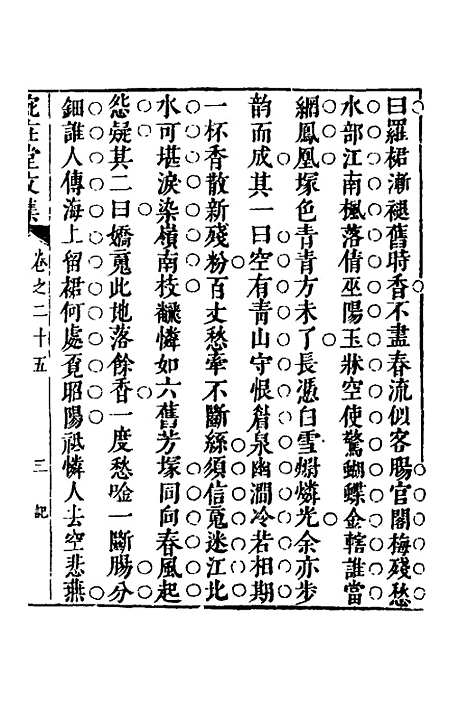 曰羅裙漸褪舊時香不盡春流似客腸官閣梅殘愁
水部江南楓落倩巫陽玉牀空使驚蝴蝶金轄誰當
網鳳凰塚色青青方未了長憑白雪鬭憐光余亦步
韵而成其一曰空有青山守恨眢泉幽澗冷若相期
一杯香散新殘粉百丈愁牽不斷絲須信䰟迷江北
水可堪淚染嶺南枝纖憐如六舊芳塚同向春風起
怨疑其二曰嬌䰟此地落餘香一度愁唫一斷腸分
鈿誰人傳海上留裙何處覓昭陽祗憐人去空悲燕
堂文集
卷之二十五
三
記